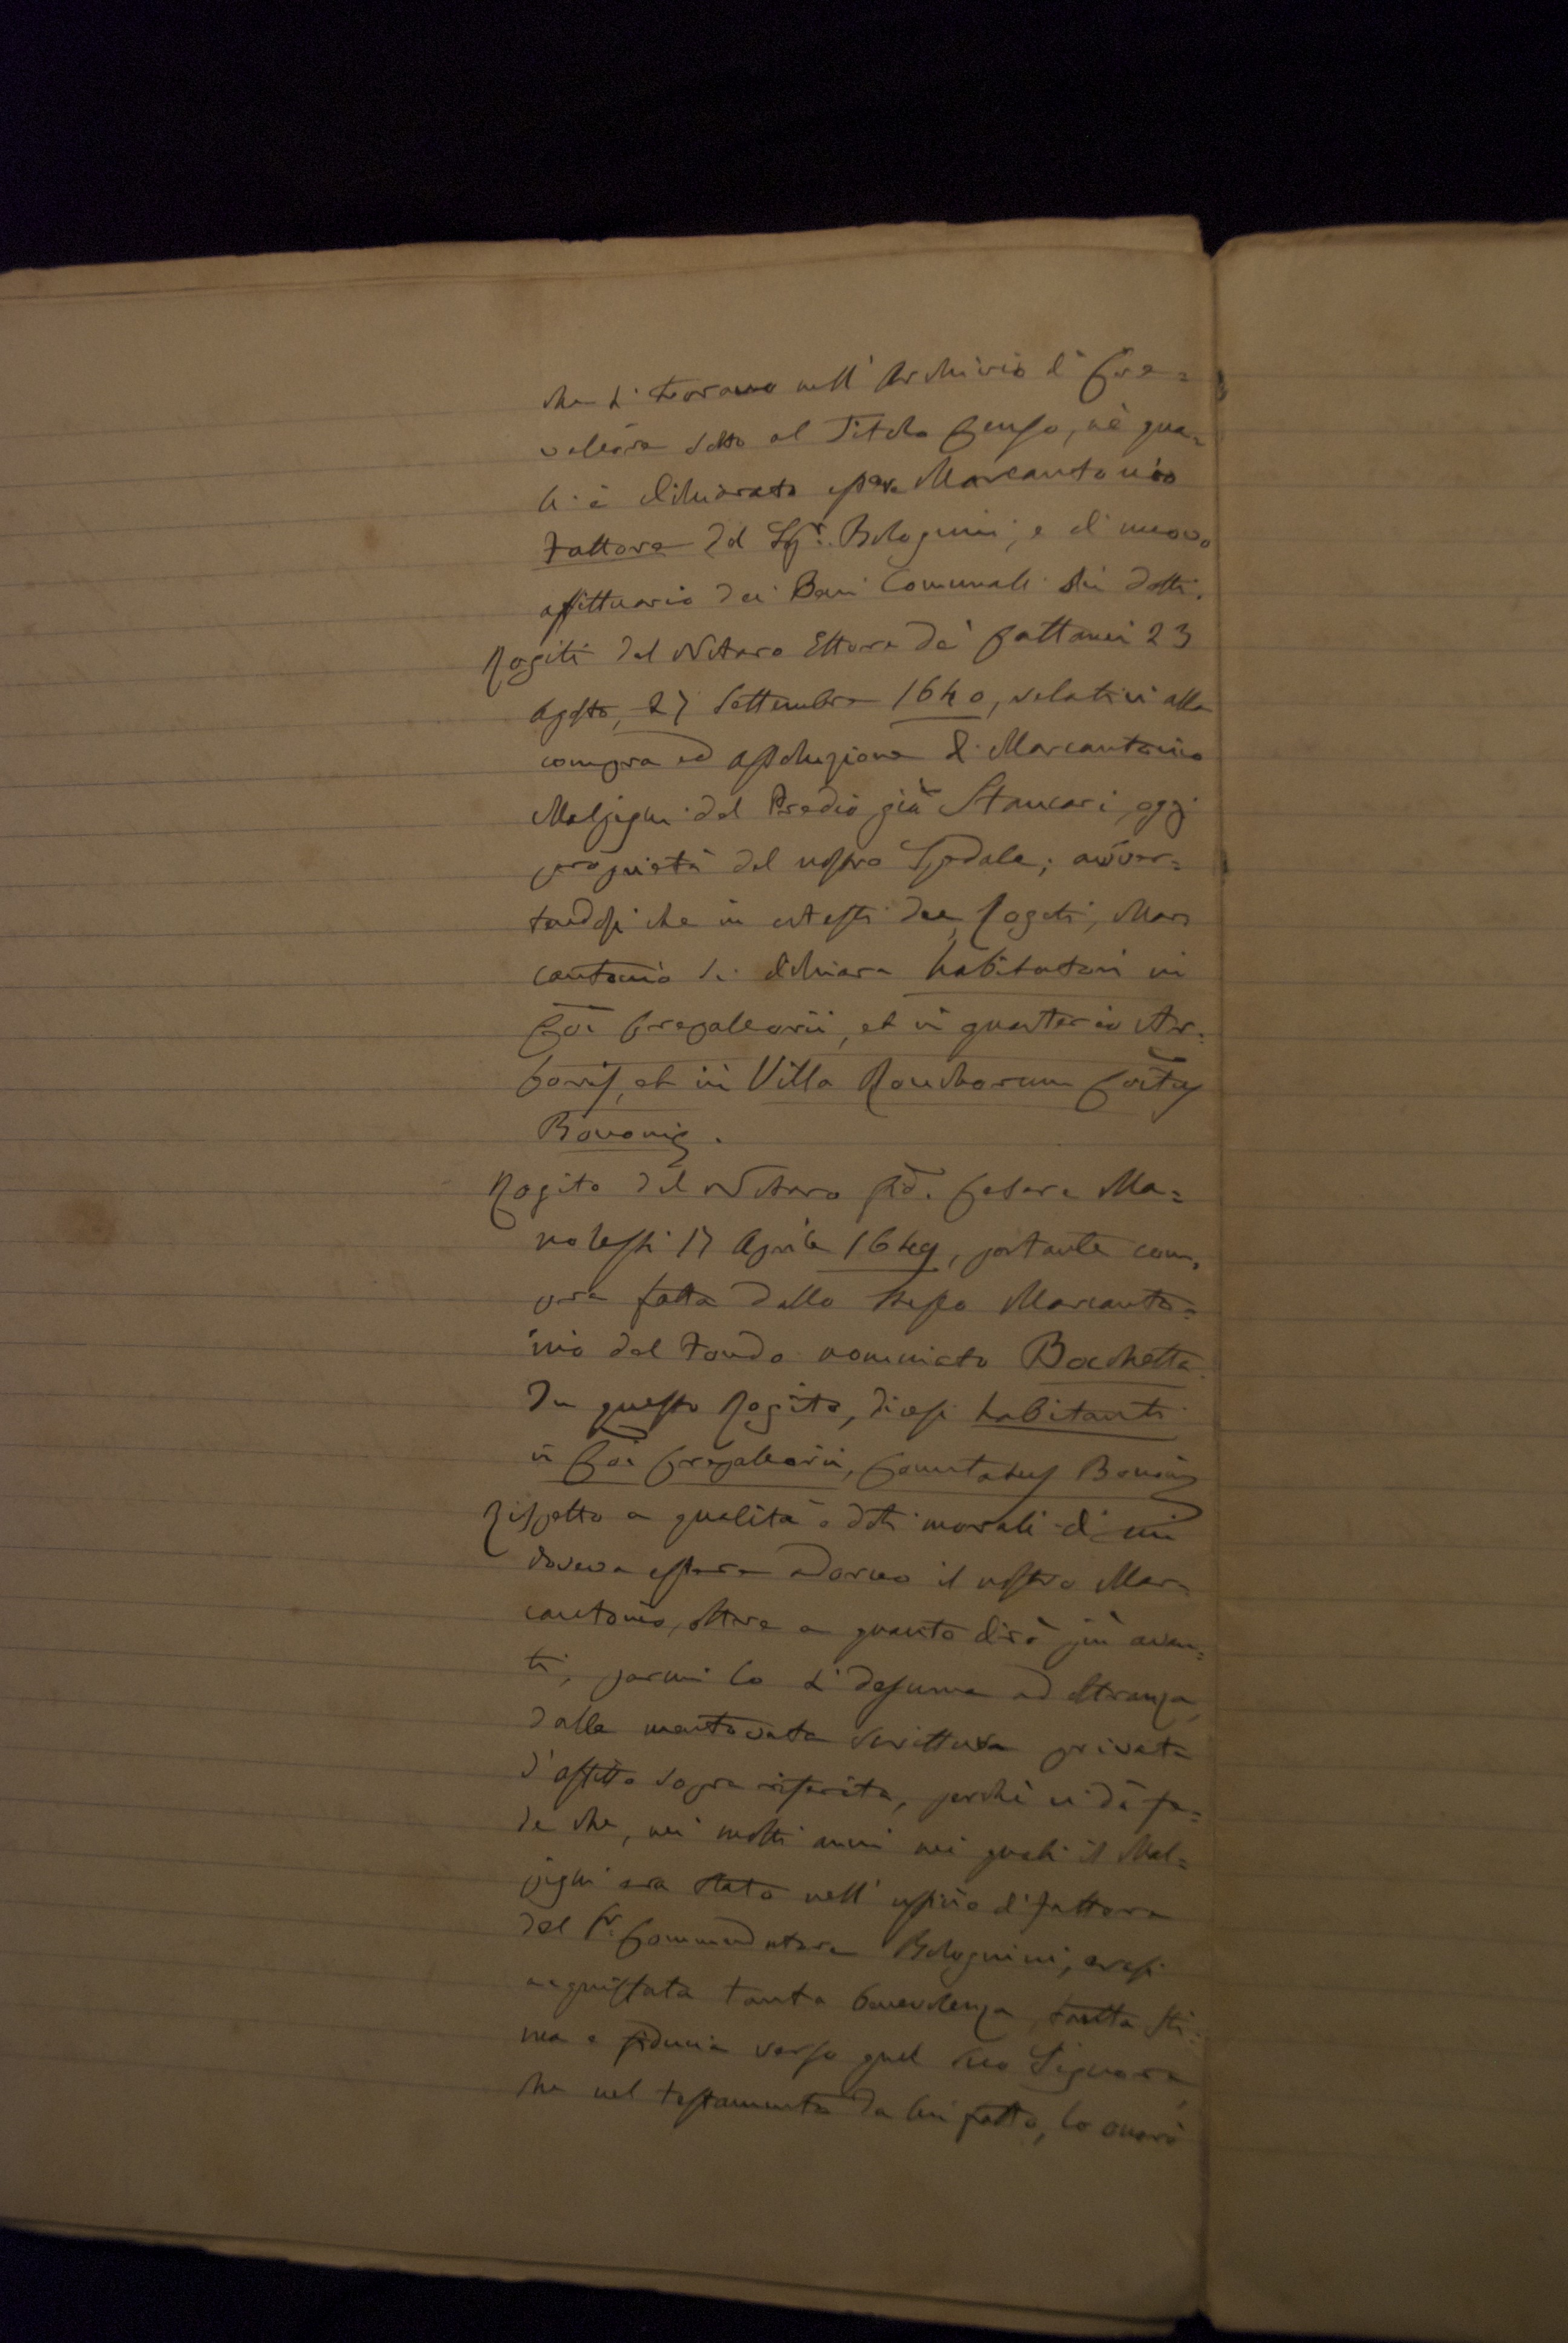 che si trovano nell'Archivio di Cre=
valcore sotto al Titolo Censo, nè qua=
li è dichiarato essere Marcantonio
Fattore del Sigr. Bolognini, e di nuovo
affittuario dei Beni Comunali sud detti.
Rogiti del Notaro Ettore de' Cattanei 23
Agosto, 27 Settembre 1640, relativi alla
compra ed assoluzione di Marcantonio
Malpighi del Predio già Stancari, oggi
proprietà del nostro Spedale; avver=
tendosi che in cotesti due Rogiti, Mar=
cantonio si dichiara habitatori in
Coi Crepalcorii, et in quarterio Ar=
boris, et in Villa Ronchorum Coitus
Bononię.
Rogito del Notaro Cesare Ma=
nolessi 17 Aprile 1649, portante com=
pra fatta dallo stesso Marcanto=
nio del Fondo nominato Bochetta.
In questo Rogito, dicesi habitanti
in Coi Crepalcorii, Comitatus Bononię
Rispetto a qualità e doti morali di cui
doveva essere adorno il nostro Mar=
cantonio, oltre a quanto dirò più avan=
ti, parmi lo si desuma ad oltranza,
dalla mentovata scrittura privata
d'affitto sopra riferita, perchè ci dà fe=
de che, nei molti anni nei quali il Mal=
pighi era stato nell'uffizio di fattore
del Sr. Commendatore Bolognini, erasi
acquistata tanta benevolenza, tanta sti=
ma e fiducia verso quel suo Signore,
che nel testamento da lui fatto, lo onorò